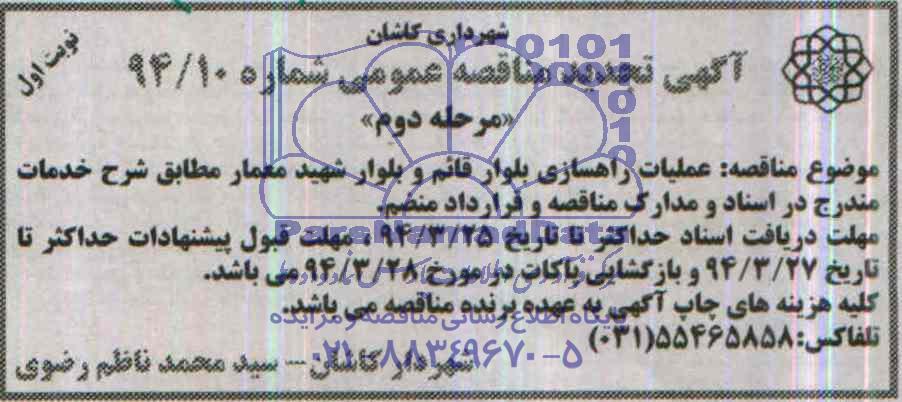 شهرداری کاشان
آگهی تجدید مناقصه عمومی شماره ۹۴/۱۰
نوبت اول
«مرحله دوم»
موضوع مناقصه: عملیات راهسازی بلوار قائم و بلوار شهید معمار مطابق شرح خدمات
مندرج در اسناد و مدارک مناقصه و قرارداد منضم.
مهلت دریافت اسناد حداکثر تا تاریخ ۹۴/۳/۲۵ ، مهلت قبول پیشنهادات حداکثر تا
تاریخ ۹۴/۳/۲۷ و بازگشایی پاکات در مورخ ۹۴/۳/۲۸ می باشد.
کلیه هزینه های چاپ آگهی به عهده برنده مناقصه می باشد.
تلفاکس:۵۵۴۶۵۸۵۸(۰۳۱)
شهردار کاشان – سید محمد ناظم رضوی
ParsNamadData
پایگاه اطلاع رسانی مناقصه و مزایده
۰۲۱-۸۸۳۴۹۶۷۰-۵